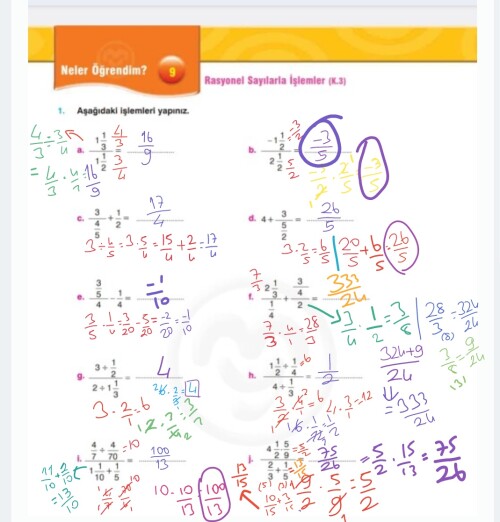 Neler Öğrendim? 9
Rasyonel Sayılarla İşlemler (K.3)
1. Aşağıdaki işlemleri yapınız.
a. 1 1/3 / 1 1/2 = 16/9
4/3
3/4
4/3 ÷ 3/4
= 4/3 · 4/3 = 16/9
b. -1 1/2 / 2 1/2 = -3/5
-3/2
5/2
-3/5
c. 3 / 4/5 + 1/2 = 17/4
3 ÷ 4/5 = 3 · 5/4 = 15/4 + 2/4 = 17/4
d. 4 + 3 / 5/2 = 26/5
3 · 2/5 = 6/5 | 20/5 + 6/5 = 26/5
e. 3/5 / 4 - 1/4 = -1/10
3/5 · 1/4 = 3/20 - 5/20 = -2/20 = -1/10
f. 2 1/3 / 1/4 + 3/4 / 2 = 333/24
7/3
7/3 · 4/1 = 28/3
3/4 · 1/2 = 3/8
28/3 (8) = 224/24
324+9 / 24
3/8 (3) 9/24
= 333/24
g. 3 + 1/2 / 2 + 1 1/3 = 4
3 · 2/1 = 6
4
h. 1 1/2 ÷ 1/4 / 4 ÷ 1/3 = 1/2
=6
4 · 3/1 = 12
i. 4/7 ÷ 4/70 / 1 1/10 + 1/5 = 100/13
=10
11/10 + 2/10
= 13/10
10 · 10/13 = 100/13
j. = 75/26
13/15
10/15 + 3/15
= 5/2
= 5/2 · 15/13 = 75/26